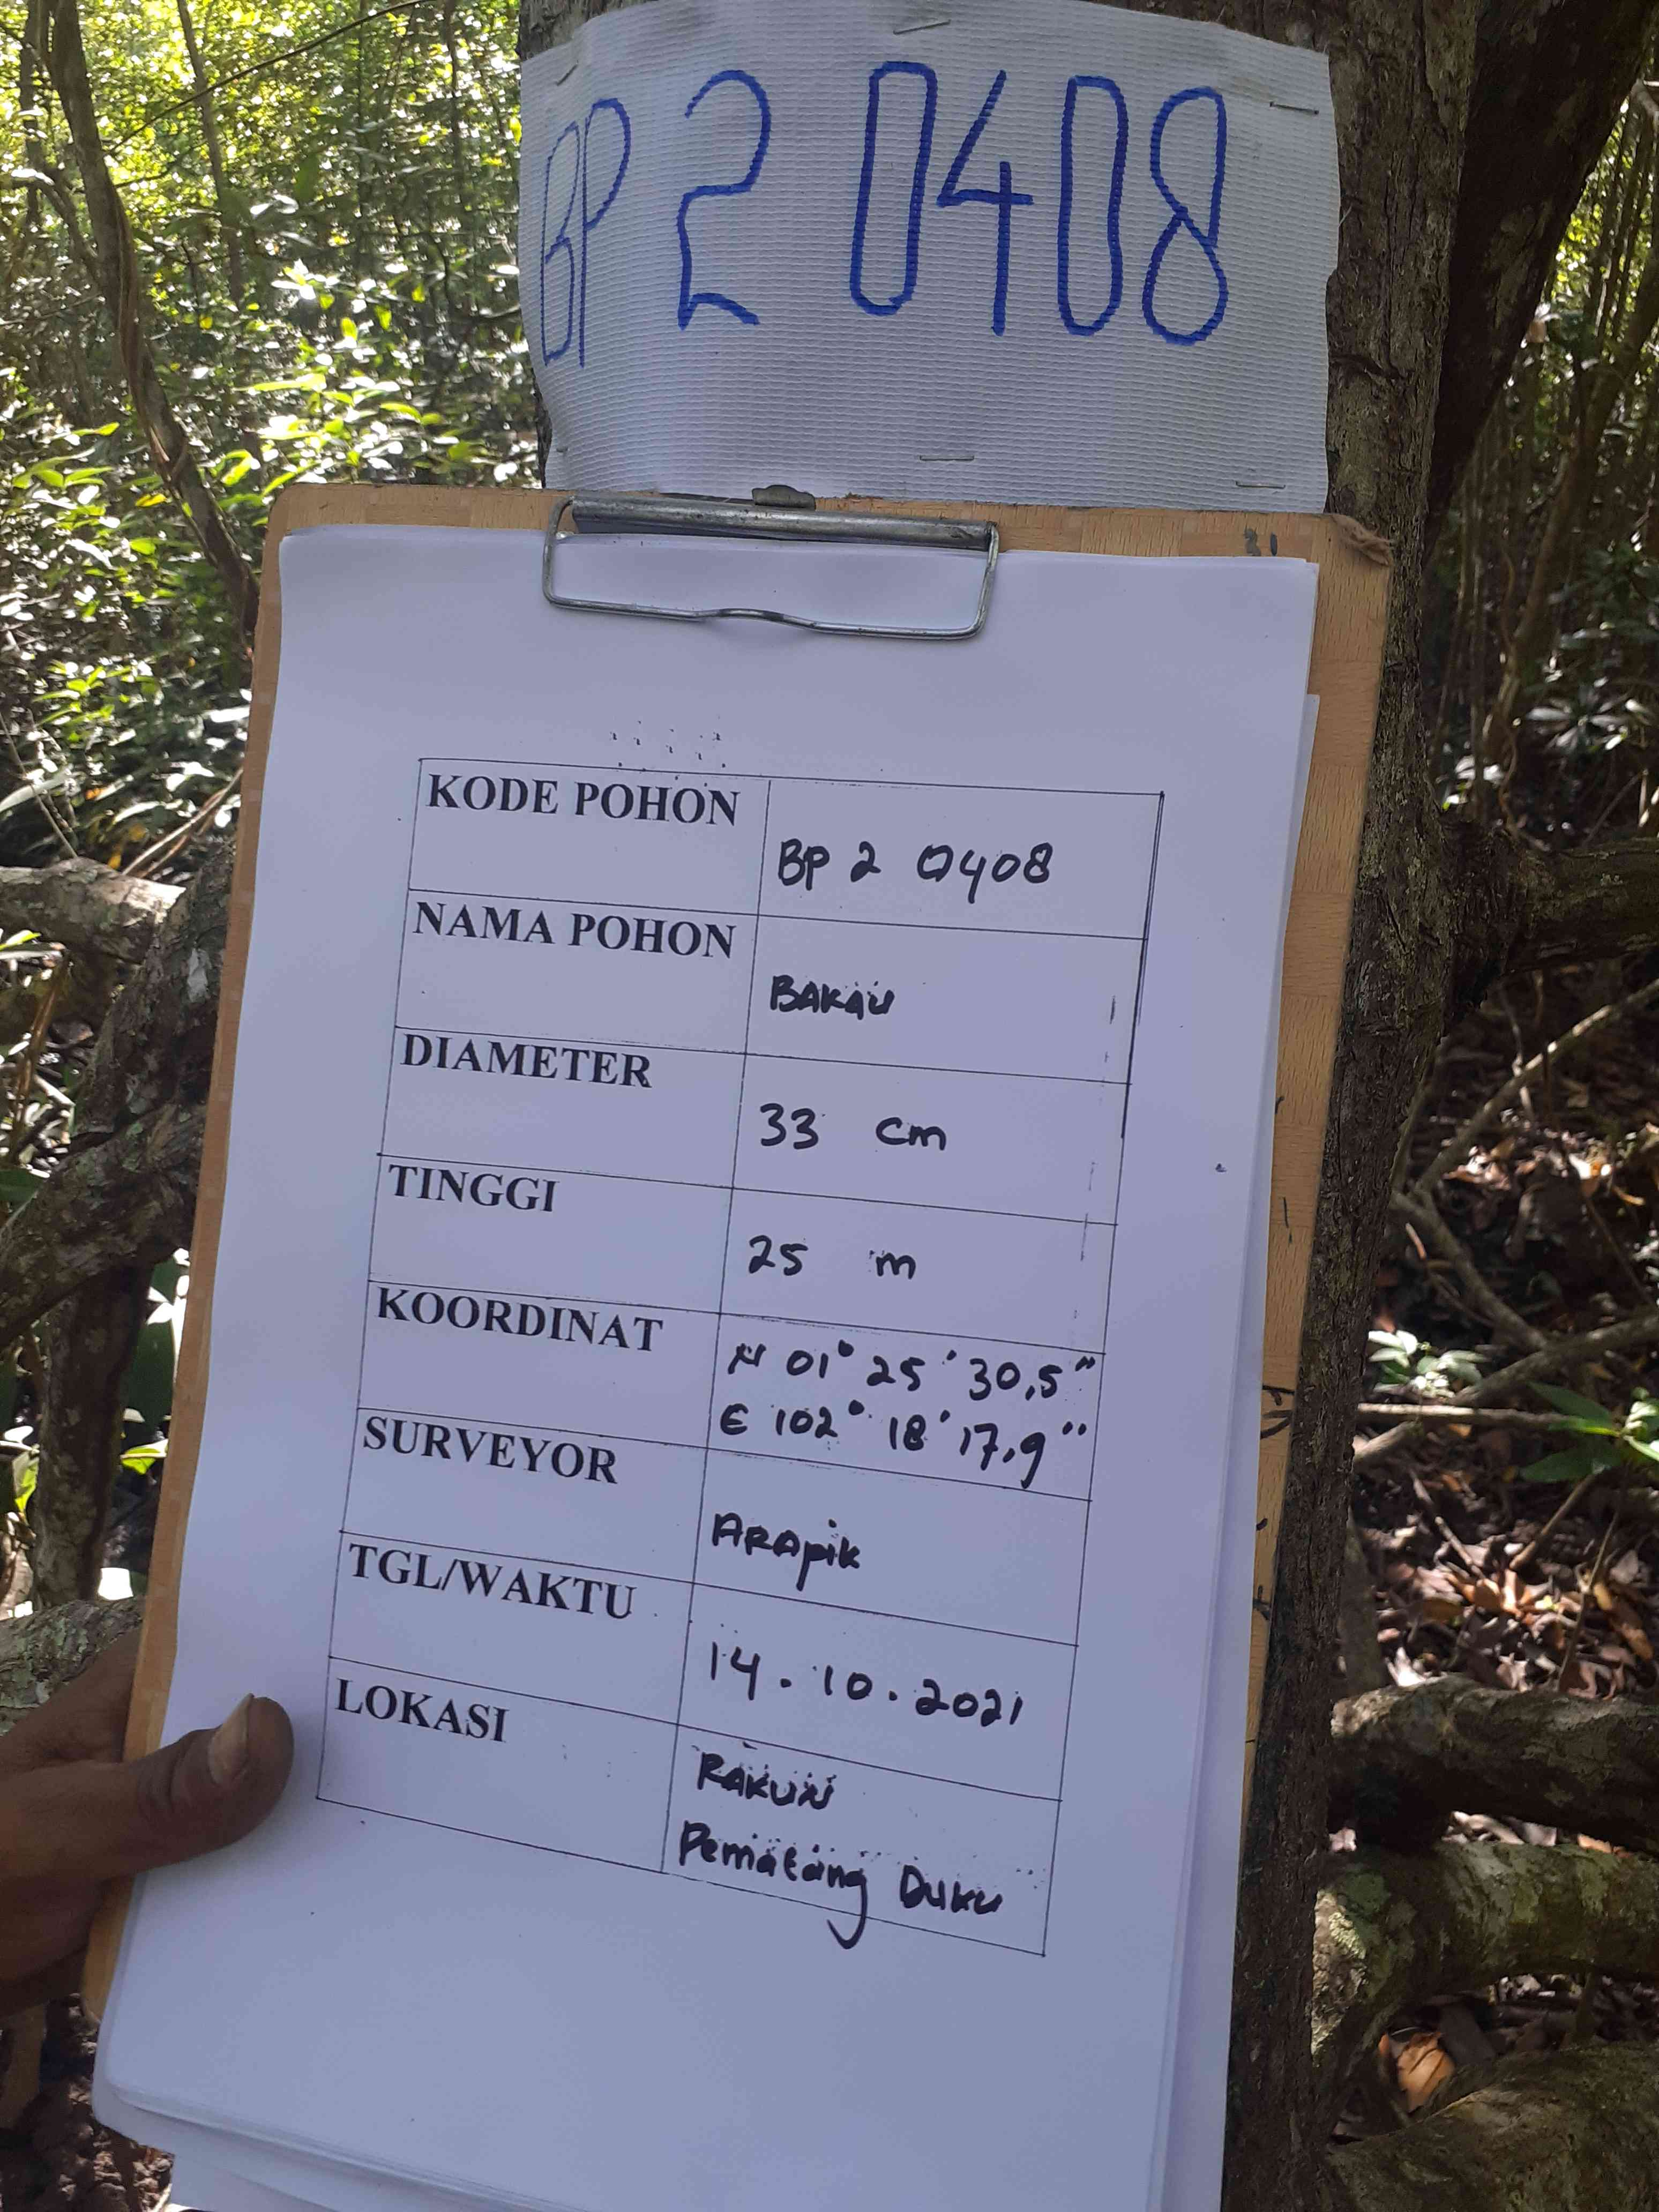 BP 2 0408
KODE POHON
BP 2 0408
NAMA POHON
BAKAU
DIAMETER
33 cm
TINGGI
25 m
KOORDINAT
N 01° 25' 30,5"
E 102° 18' 17,9"
SURVEYOR
ARApik
TGL/WAKTU
14.10.2021
LOKASI
RAKUN
Pematang Duku